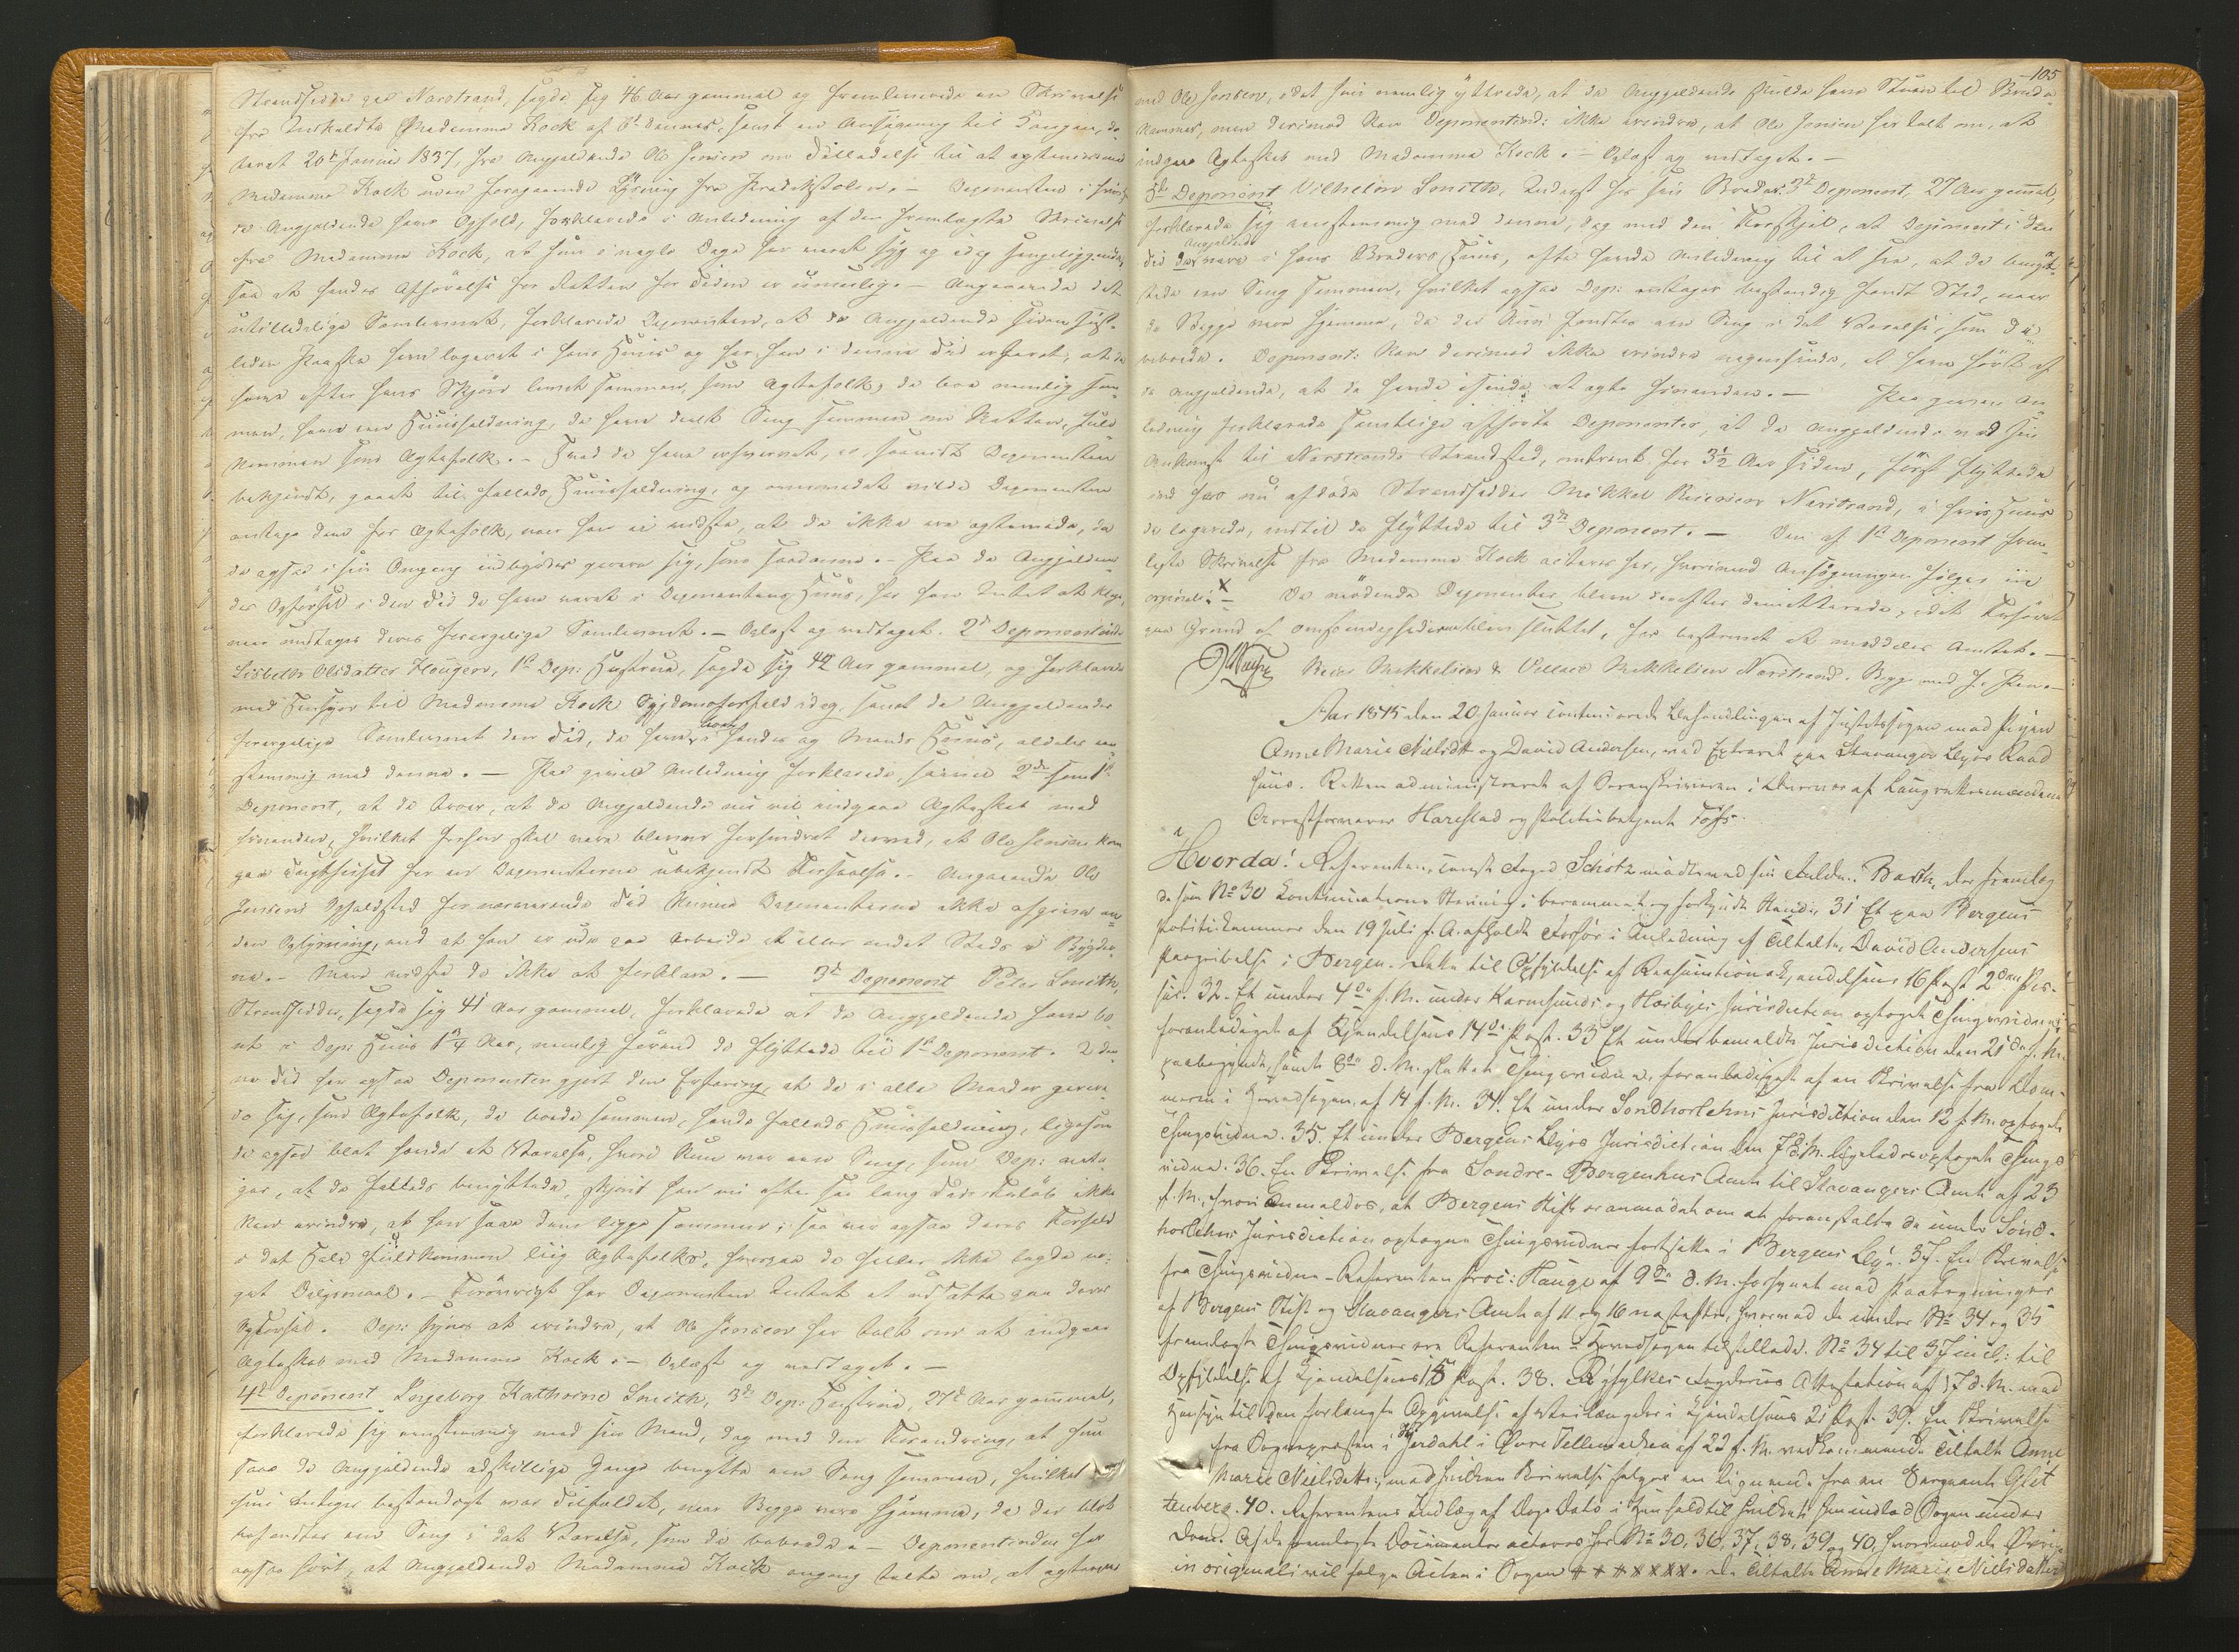 Strandsidder paa Narstrand, sagde sig 46 Aar gammel og fremleverede en Skrivelse
fra Indkaldte Madamme Kock af Dennes, samt en Ansøgning til Kongen, da-
teret 20de Januar 1837, fra Angjeldende Ole Jensen om Tilladelse til at ægte
Madamme Kock uden foregaaende Lysning fra Prædikestolen. – Deponenten, i hvis
de Angjeldende have Ophold, forklarede i Anledning af den fremlagte Skrivelse
fra Madamme Kock, at hun i nogle Dage har været syg og idag sengeliggende,
saa at hendes Afhørelse for Retten for Tiden er umulig. – Angaaende det
utilladelige Samlevnet, forklarede Deponenten, at de Angjeldende siden sidst-
leden Paaske have logeret i hans Huus og har han i denne Tid erfaret, at de
have efter hans Skjøn levet sammen, som Ægtefolk, da boe nemlig sam-
men, have een Huusholdning, de have deelt Seng sammen om Natten, fuld-
kommen som Ægtefolk. – Hvad de have erhvervet, er, saavidt Deponenten
bekjendt, gaaet til fælleds Huusholdning, og vilde Deponenten
antage dem for Ægtefolk, naar han ei vidste, at de ikke ere ægteviede, da
de ogsaa i sin Omgang indbyrdes gerere sig, som saadanne. – Paa de Angjelden-
des Opførsel i den Tid de have været i Deponentens Huus, har han Intet at klage,
naar undtages deres forargelige Samlevnet. – Oplæst og vedtaget. 2de Deponentinde
Lisbeth Olsdatter Haugen, 1ste Dep: Hustrue, sagde sig 42 Aar gammel, og forklarede
med Hensyn til Madamme Kock Sygdomsforfald idag, samt de Angjeldendes
forargelige Samlevnet den Tid, de have boet i hendes og Mands Huus, aldeles een-
stemmig med denne. – Paa given Anledning forklarede, saavel 2den som 1ste
Deponent, at de troer, at de Angjeldende nu vil indgaae Ægteskab med
hinanden, hvilket forhen skal være bleven forhindret derved, at Ole Jensen kom
paa Tugthuset for en Deponenterne ubekjendt Forseelse. – Angaaende Ole
Jensens Opholdsted for nærværende Tid kunne Deponenterne ikke afgive an-
den Oplysning, end at han er ude paa Arbeide et eller andet Steds i Bygder-
ne. – Mere vidste de ikke at forklare. – 3de Deponent Peter Smith,
Strandsidder, sagde sig 41 Aar gammel, forklarede at de Angjeldende have bo-
et i Dep: Huus 1¼ Aar, nemlig førend de flyttede til 1ste Deponent. I den-
ne Tid har ogsaa Deponenten gjort den Erfaring, at de i alle Maader gerere-
de sig, som Ægtefolk, de boede sammen, havde fælleds Huusholdning, ligesom
de ogsaa blot havde et Værelse, hvori kun var een Seng, som Dep: anta-
ger, at de fælleds benyttede, skjønt han nu efter saa lang Tids Forløb ikke
kan erindre, at han saae dem ligge sammen; saa var ogsaa deres Forhold
i det Hele fuldkommen liig Ægtefolks, hvorpaa de heller ikke lagde no-
get Dølgsmaal. – Forøvrigt har Deponenten Intet at udsætte paa deres
Opførsel. Dep: synes at erindre, at Ole Jensen har talt om at indgaae
Ægteskab med Madamme Kock. – Oplæst og vedtaget. –
4de Deponent Ingeborg Kathrine Smith, 3de Dep: Hustrue, 27 Aar gammel,
forklarede sig eenstemmig med sin Mand, dog med den Forandring, at hun
saae de Angjeldende adskillige Gange benytte een Seng sammen, hvilket
hun antager bestandigt var Tilfældet, naar Begge vare hjemme, da der blot
befandtes een Seng i det Værelse, som de beboede. – Deponentinden har
ogsaa hørt, at Angjeldende Madamme Kock engang talte om, at ægte
105
med Ole Jensen, idet hun nemlig yttrede, at de Angjeldende skulde have Stuen til Brude-
kammer, men derimod kan Deponentind: ikke erindre, at Ole Jensen har talt om, at
indgaae Ægteskab med Madamme Kock. – Oplæst og vedtaget. –
5te Deponent Vilhelm Smith, Inderst hos sin Broder 3de Deponent, 27 Aar gammel,
forklarede sig eenstemmig med denne, dog med den Forskjel, at Deponent i den
Tid Angjeldende vare i hans Broders Huus, ofte havde Anledning til at see, at de benyt-
tede een Seng sammen, hvilket ogsaa Dep: antager bestandig fandt Sted, naar
de Begge var hjemme, da der kun fandtes een Seng i det Værelse, som de
beboede. Deponent: kan derimod ikke erindre nogensinde, at have hørt af
de Angjeldende, at de havde isinde at ægte hinanden. – Paa given An-
ledning forklarede samtlige afhørte Deponenter, at de Angjeldende ved sin
Ankomst til Narstrands Strandsted, omtrent for 3½ Aar siden, først flyttede
ind hos nu afdøde Strandsidder Mikkel Narstrand, i hvis Huus
de logerede, indtil de flyttede til 3de Deponent. – Den af 1ste Deponent frem-
lagte Skrivelse fra Madamme Kock acteres her, hvorimod Ansøgningen følger in
originali. De mødende Deponenter bleve derefter dimitterede, idet Forhøret
paa Grund af Omstændighederne blev sluttet, for bestemt at meddeles Amtet. –
Mikkelsen & Mikkelsen Narstrand. Begge med f. Pen. –
Aar 1845 den 20 Januar continuerede Behandlingen af Justitssagen mod Pigen
Anne Marie Nielsdtr og David Andersen, ved Extraret paa Stavanger Byes Raad-
huus. Retten administreret af Sorenskriveren i Overvær af Laugrettesmændene
Arrestforvarer Harestad og Politiebetjent
Hvorda! Referenten, const. Foged Schøtz mødte ved sin Fuldm. Barth, der fremlag-
de som No 30 Continuations Stevning i berammet og forkyndt Stand; 31 Et paa Bergens
Politiekammer den 19 Juli f. A. afholdt Forhør i Anledning af Tiltalte, David Andersens
Paagribelse i Bergen. Dette til Opfyldelse af Kjendelsens 16 Post 2den Pas-
sus. 32. Et under 4de f. M. under Karmsunds og Jurisdiction optaget Thingsvidne,
foranlediget af Kjendelsens 14de Post. 33 Et under bemeldte Jurisdiction den 21de f. M.
paabegyndt, samt 8de d. M. sluttet Thingsvidne, foranlediget af en Skrivelse fra Dom-
meren i Hovedsagen, af 14 f. M. 34. Et under Søndhorlehns Jurisdiction den 12 f. M. optaget
Thingsvidne. 35. Et under Bergens Byes Jurisdiction den 7 d. M. ligeledes optaget Things-
vidne. 36. En Skrivelse fra Søndre-Bergenhuus Amt til Stavangers Amt af 23
f. M., hvori anmeldes, at Bergens Stift er anmodet om at foranstalte de under Sønd-
horlehns Jurisdiction optagne Thingsvidner fortsatte i Bergens By. 37. En Skrivelse
fra Thingsvidne-Referenten Proc: Hauge af 9de d. M. forsynet med Paategninger
af Bergens Stift og Stavangers Amt af 11 og 16 næstefter, hvorved de under No 34 og 35
fremlagte Thingsvidner ere Referenten i Hovedsagen tilstillede. No 34 til 37 incl: til
Opfyldelse af Kjendelsens 18 Post. 38. Ryfylkes Fogderies Attestation af 17 d. M. med
Hensyn til den forlangte Opgivelse af i Kjendelsens 21 Post. 39. En Skrivelse
fra Sognepræsten i Hjerdahl i Øvre Tellemarken af 22 f. M. vedkommende Tiltalte Anne
Marie Nielsdatter, med hvilken Skrivelse følger en lignende fra en Sergeant Glit-
tenberg. 40. Referentens Indlæg af Dags Dato i Henhold til hvilket han indlod Sagen under
Dom. Af de fremlagte Documenter acteres her No 30, 36, 37, 38, 39 og 40, hvorimod de Øvrige
in originali vil følge Acten i Sagen. De Tiltalte Anne Marie Nielsdatter